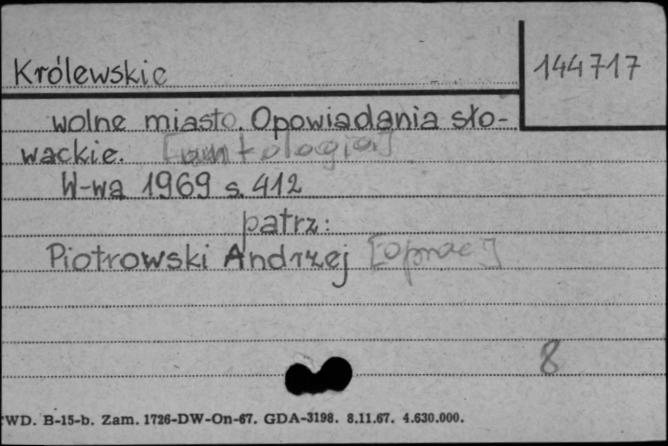 Królewskie
144717
wolne miasto. Opowiadania sło-
wackie. [antologia]
W-wa 1969 s. 412
patrz:
Piotrowski Andrzej [oprac]
8
WD. B-15-b. Zam. 1726-DW-On-67. GDA-3198. 8.11.67. 4.630.000.